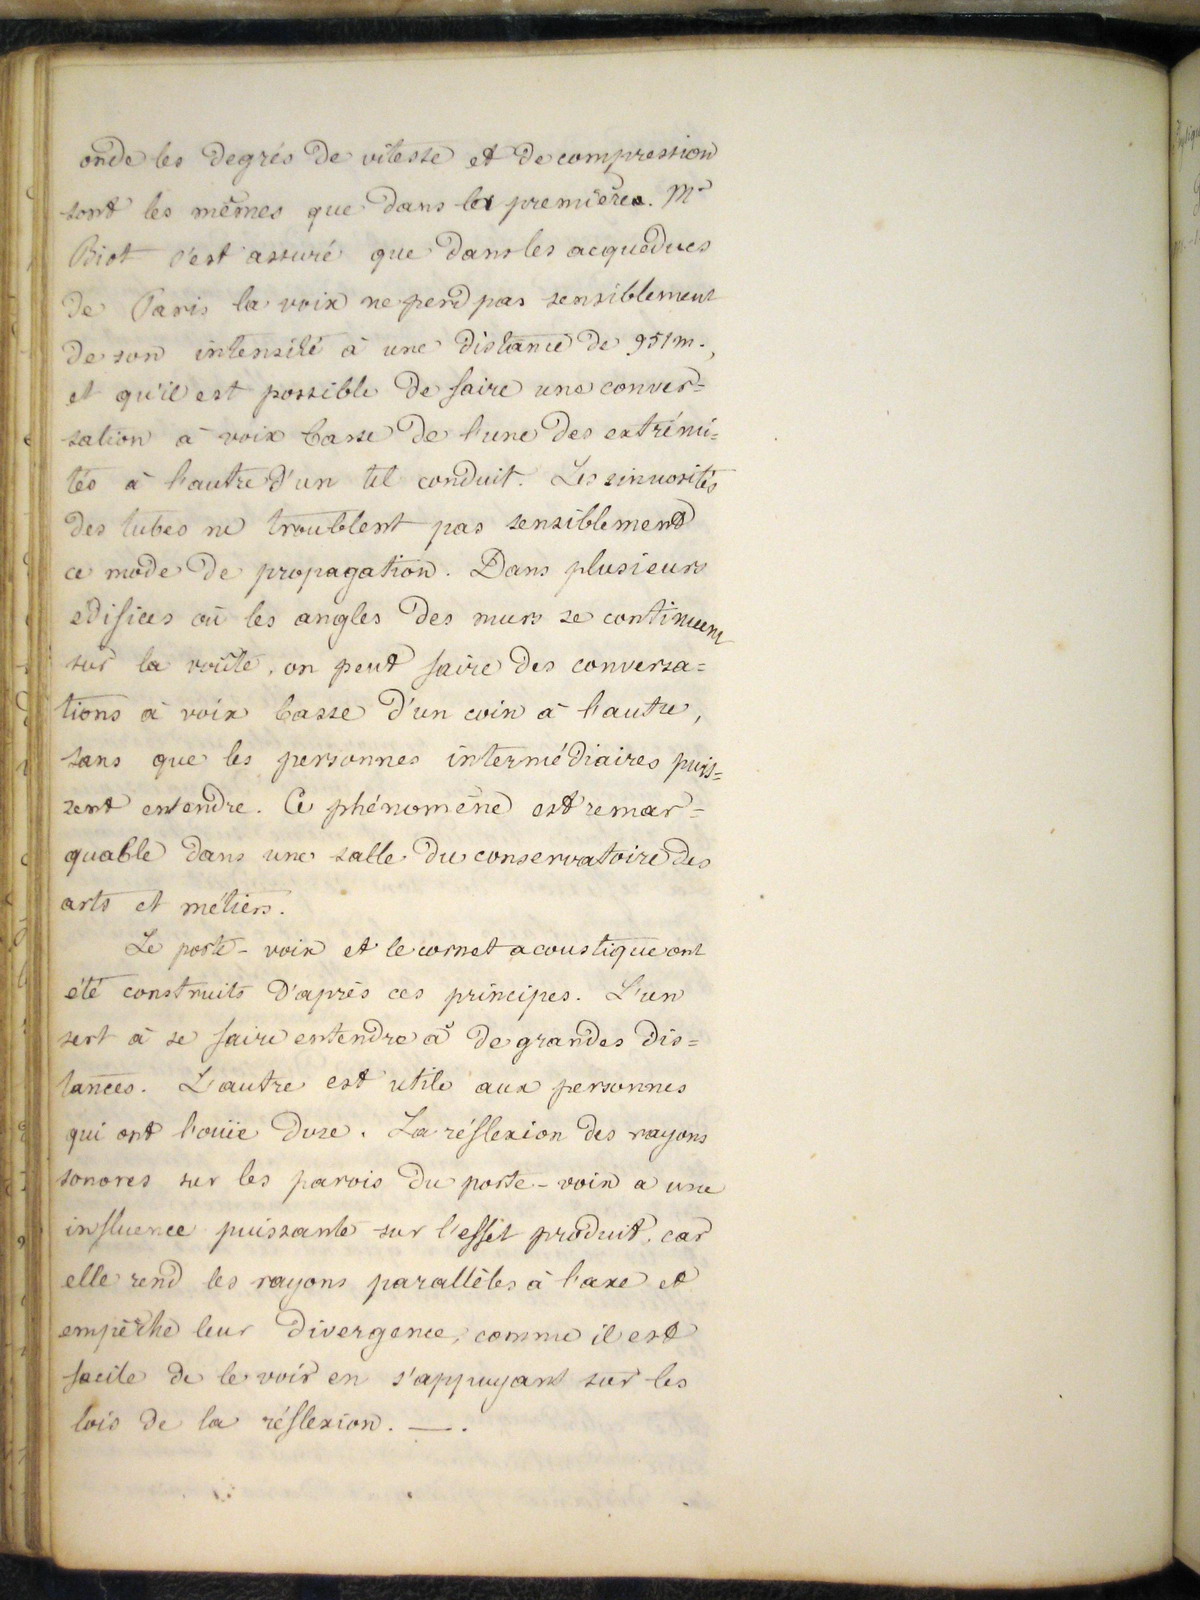 onde les degrés de vitesse et de compression
sont les mêmes que dans les premières. Mr
Biot s'est assuré que dans les acqueducs
de Paris la voix ne perd pas sensiblement
de son intensité à une distance de 951 m.,
et qu'il est possible de faire une conver=
sation à voix basse de l'une des extrémi=
tés à l'autre d'un tel conduit. Les sinuosités
des tubes ne troublent pas sensiblement
ce mode de propagation. Dans plusieurs
édifices où les angles des murs se continuent
sur la voûte, on peut faire des conversa=
tions à voix basse d'un coin à l'autre,
sans que les personnes intermédiaires puis=
sent entendre. Ce phénomène est remar=
quable dans une salle du conservatoire des
arts et métiers.
Le porte-voix et le cornet acoustique ont
été construits d'après ces principes. L'un
sert à se faire entendre à de grandes dis=
tances. L'autre est utile aux personnes
qui ont l'ouïe dure. La réflexion des rayons
sonores sur les parois du porte-voix a une
influence puissante sur l'effet produit, car
elle rend les rayons parallèles à l'axe et
empêche leur divergence, comme il est
facile de le voir en s'appuyant sur les
lois de la réflexion. —.